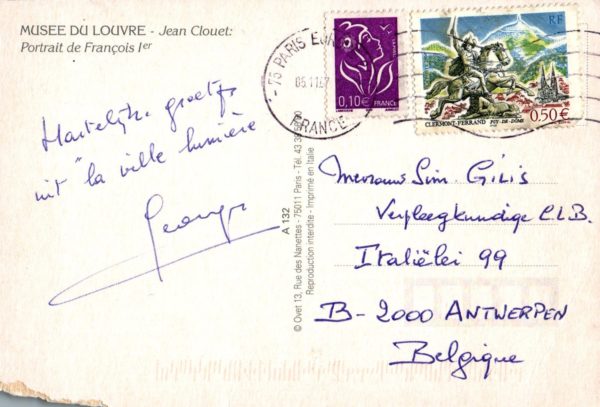 MUSEE DU LOUVRE - Jean Clouet:
Portrait de François Ier
Hartelijke groetjes
uit "la ville lumière
Georges
A 132
© Ovet 13, Rue des Nanettes - 75011 Paris - Tél. 43
Reproduction interdite - Imprimé en Italie
75 PARIS
FRANCE
0,10€ FRANCE
RF
CLERMONT-FERRAND PUY-DE-DÔME
0,50€
Mevrouw Sim. GILIS
Verpleegkundige C.L.B.
Italiëlei 99
B-2000 ANTWERPEN
Belgique